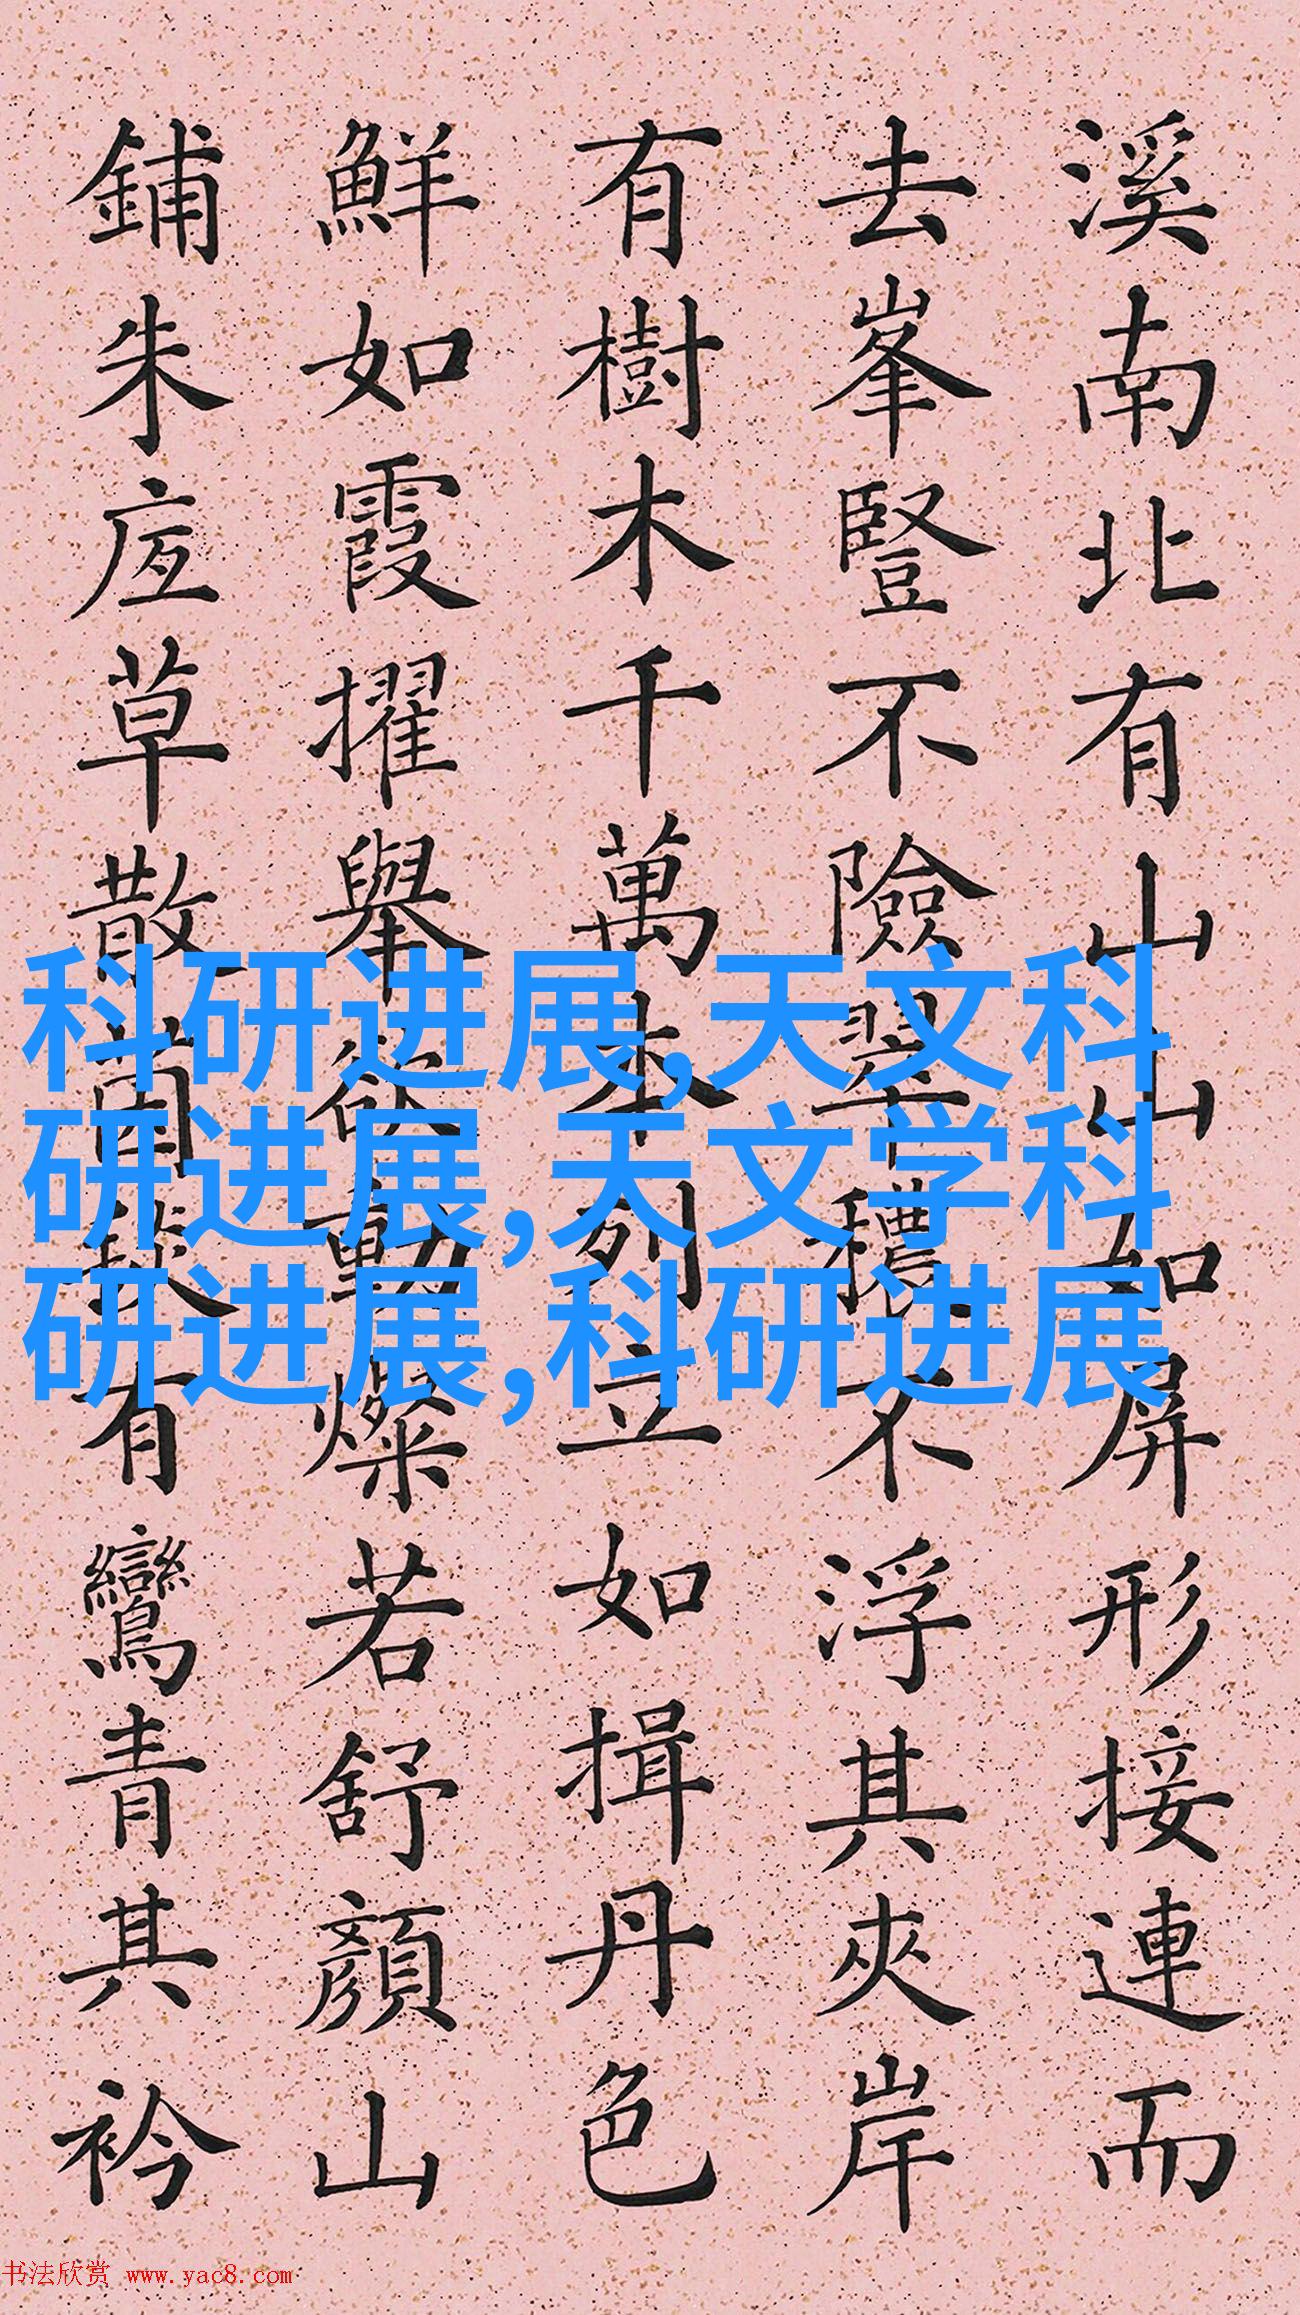 溪南北有山山如屏形接連而
去峯豎不險翠穠不浮其夾岸
有樹木千萬本列立如揖丹色
鮮如霞擢舉欲動燦若舒顏山
鋪朱底草散茵毯有鸞青其衿
科研进展,天文科
研进展,天文学科
研进展,科研进展
书法欣赏 www.yac8.com